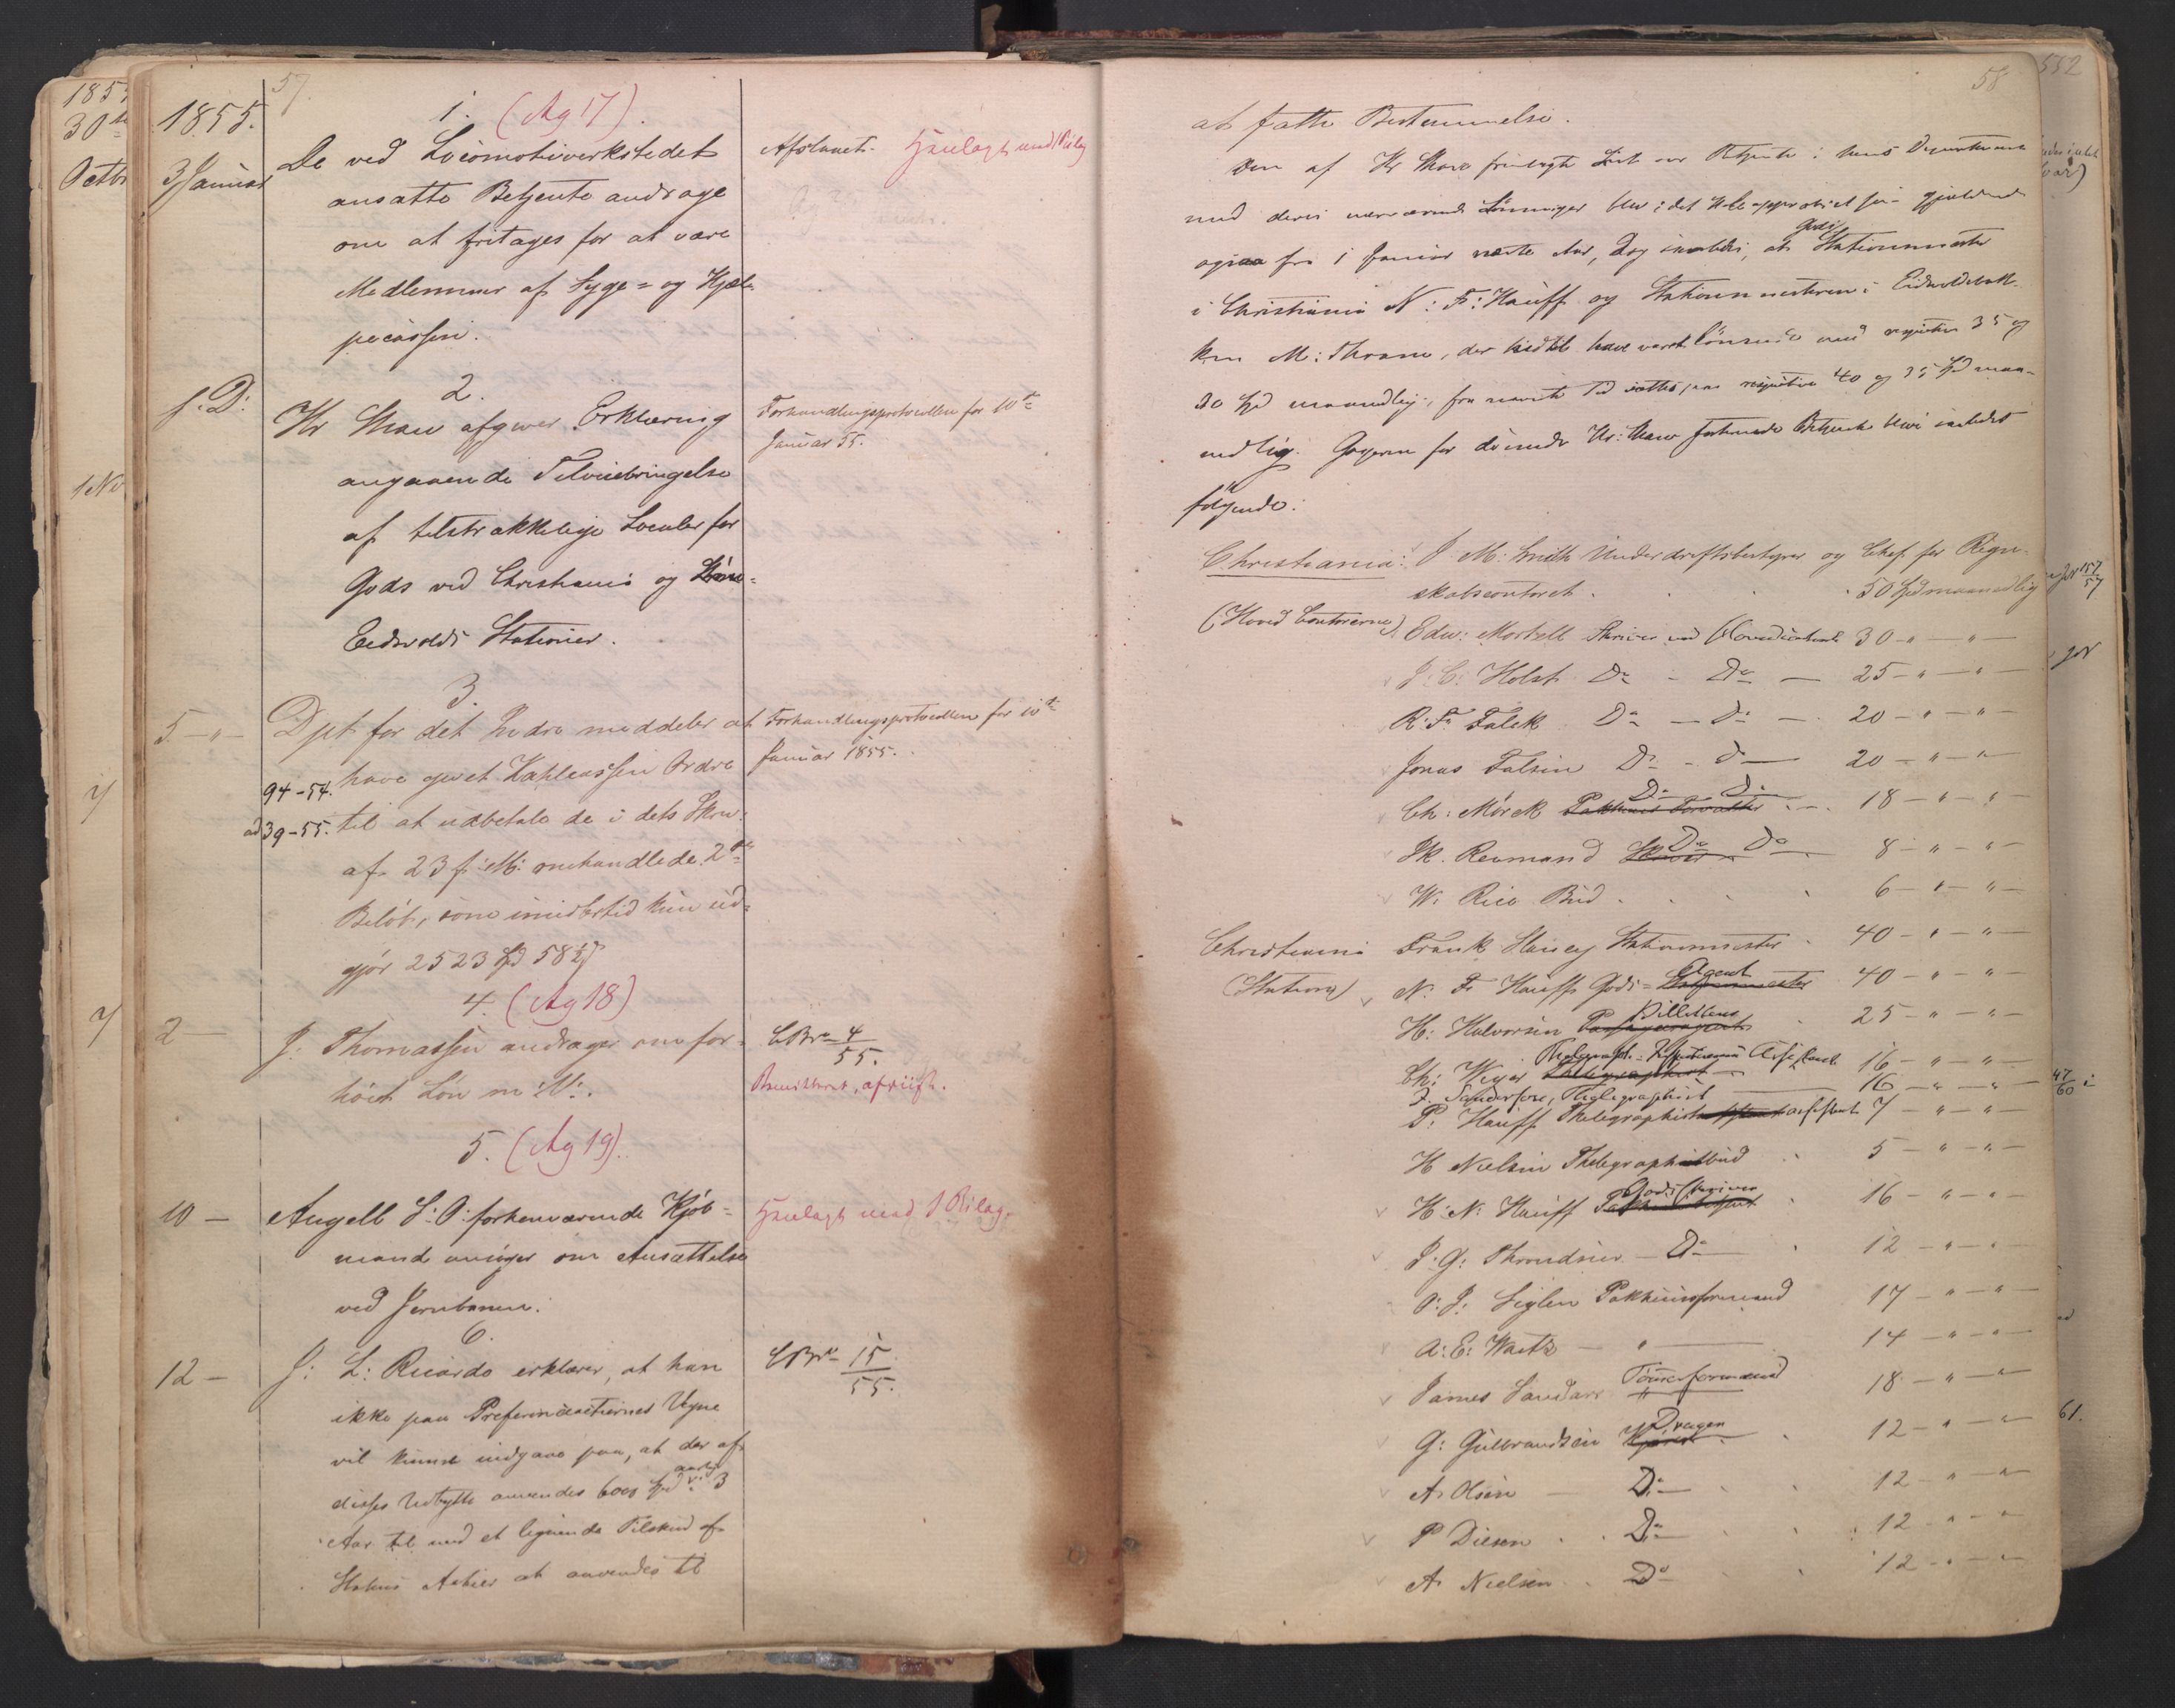 57.
1855.
3 Januar
1. (Ag 17).
De ved Locomotivverkstedet
ansatte Betjente andrage
om at fritages for at være
Medlemmer af Syge= og Hjæl=
pecassen.
Afslaaet. Henlagt med 1 Bilag
f. D:
2.
Hr Shaw afgiver Erklæring
angaaende Tilveiebringelse
af tilstrækkelige Localer for
Gods ved Christiania og
Eidsvolds Stationer.
Forhandlingsprotocollen for 10de
Januar 55.
5 — " —
94-54.
ad 39-55.
3.
Dpt for det Indre meddeler at
have givet Ordre
til at udbetale de i dets Skriv:
af 23 f: M: omhandlede 2de
Beløb, som imidlertid kun ud=
gjør 2523 Spd 58 ½ β
Forhandlingsprotocollen for 10de
Januar 1855.
2 —
4. (Ag 18)
J: Thomassen andrager om for=
høiet Løn m: V:.
CBr 4/55.
10 —
5. (Ag 19).
Angell S: P: forhenværende Kjøb=
mand ansøger om Ansættelse
ved Jernbanen.
Henlagt med 1 Bilag.
12 —
6.
J: L: Ricardo erklærer, at han
ikke paa Preferenceactiernes Vegne
vil kunne indgaae paa, at der af
disses Udbytte anvendes 6000 Spd aarlig i 3
Aar til med et lignende Tilskud af
Statens Actier at anvendes til
CBr 15/55.
58
at fatte Bestemmelse.
Den af Hr Shaw fremlagte List over Betjente i hans Departement
med deres nuværende Lønninger blev i det Hele approberet som gjældende
ogsaa fra 1 Januar næste Aar, dog saaledes, at Gods Stationsmester
i Christiania N: F: Hauff og Stationsmesteren i Eidsvoldbak-
ken M: Thrane, der hidtil have været lønnede med respective 35 og
30 Spd maanedlig, fra nævnte Tid sættes paa respective 40 og 35 Spd maa-
nedlig. Gagerne for de under Hr: Shaw sorterende Betjente blive saaledes
følgende:
Christiania: J. M. Smith Underdriftsbestyrer og Chef for Regn-
skabscontoret . . . 50 Spd maanedlig
(Hoved Contorerne) Edw: Mortzell Skriver ved Hovedcontoret 30 — " — " —
J: C: Holst Do - Do — 25 — " — " —
R: F: Falck Do — Do — 20 — " — " —
Jonas Falsen Do - Do — 20 — " — " —
Ch: Mørck Pakhuus Forvalter Do Do 18 — " — " —
Sk. Reumand Skriver Do Do 8 — " — " —
W. Rice Bud . . . 6 — " — " —
Christiania Frank Stationsmester . 40 — " — " —
(Station) N. F. Hauff Gods=Stationsmester Agent 40 — " — " —
H: Halvorsen Passageeragent Billetteur 25 — " — " —
Ch: Weyer Thelegraphist Assistent 16 — " — " —
J. Sanderson, Thelegraphist 16 — " — " —
P: Hauff Thelegraphist assistent 7 — " — " —
H Nielsen Thelegraphbud . 5 — " — " —
H: N: Hauff Godsskriver . 16 — " — " —
J: G: Throndsen — Do — . 12 — " — " —
O: J: Seglen Pakhuusformand 17 — " — " —
A: E: Waitz — " — 14 — " — " —
James Sanders Tømmerformand 18 — " — " —
G: Gulbrandsen Drager . . 12 — " — " —
A. Olsen — Do — . . 12 — " — " —
P Diesen . . Do — . . 12 — " — " —
A. Nielsen . . Do — . . 12 — " — " —